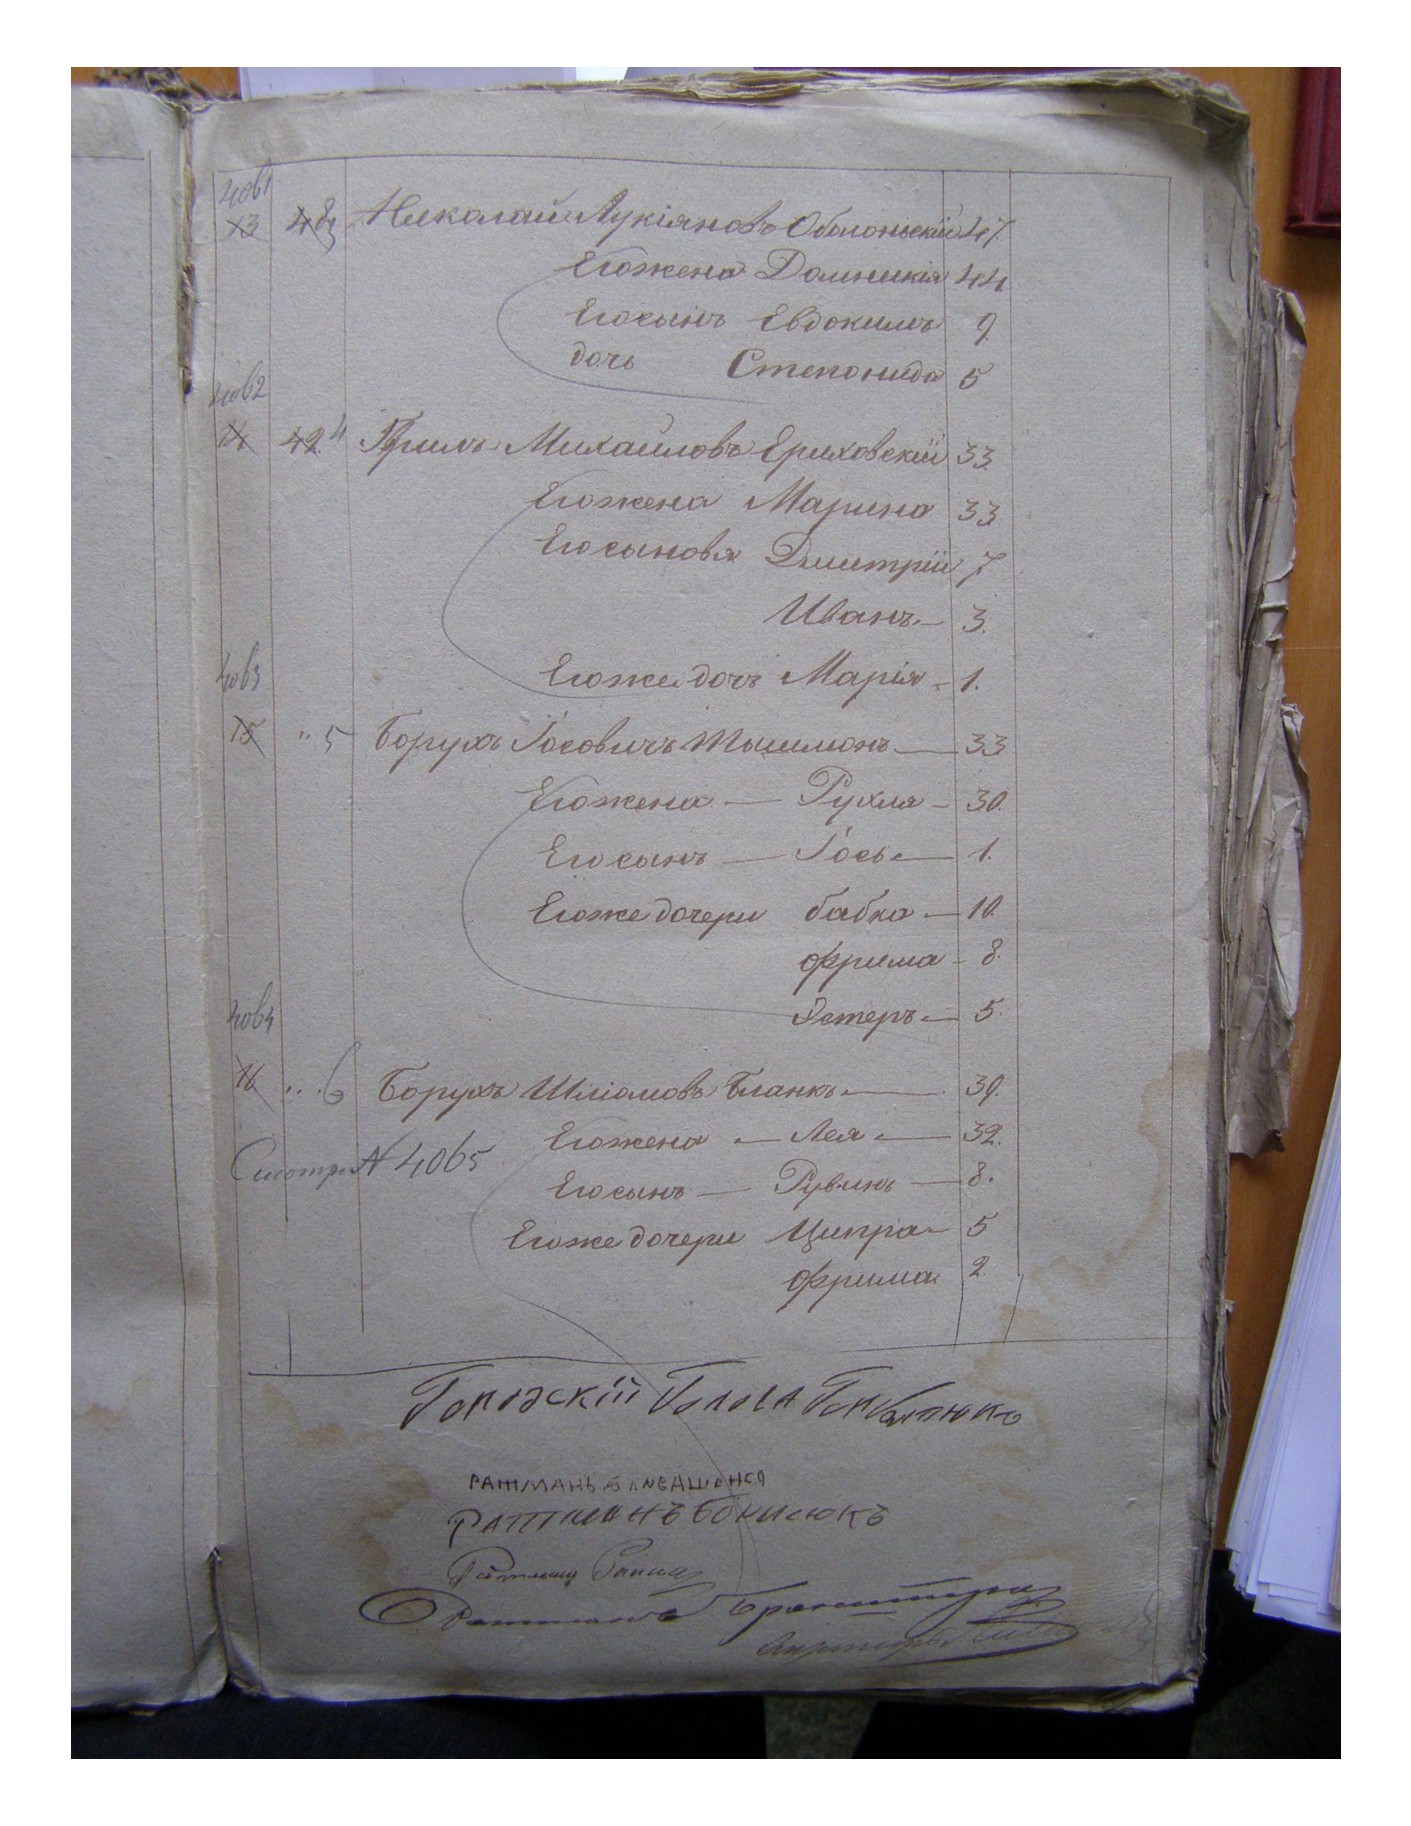 4061
13 483 Николай Лукіяновъ Оболонскій 47.
Егожена Домникія 44.
Егосынъ Евдокимъ 9.
дочь Степонида 5
4062
14 42. 4 Михайловъ Ериховскій 33
Егожена Марина 33
Егосыновя Дмитрій 7.
Иванъ 3.
4063
Егоже дочь Марія 1.
15 " 5 Борухъ Іосовичъ 33
Егожена — Рухля — 30.
Егосынъ — Іось — 1.
Егоже дочери бабка — 10.
фрима — 8.
4064
Естеръ — 5.
16 " 6 Борухъ Шліомовъ Бланкъ — 39.
Егожена — Лея — 32.
Смотри № 4065
Егосынъ — Рувинъ — 8.
Егоже дочери Ципра — 5
фрима 2.
Городскій Голова
ратманъ
Ратманъ Борисюкъ
Ратманъ
Ратманъ